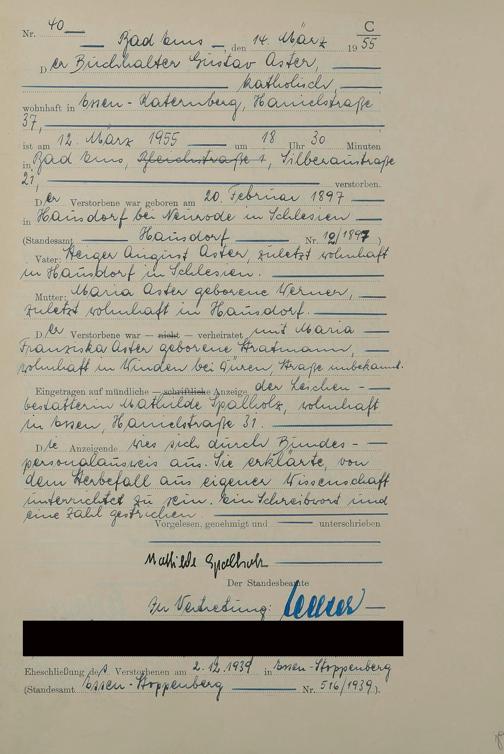 Nr. 40 C
Bad Ems, den 14. März 1955
Der Buchhalter Gustav Aster,
katholisch,
wohnhaft in Essen-Katernberg, Hanielstraße
37,
ist am 12. März 1955 um 18 Uhr 30 Minuten
in Bad Ems, Bleichstraße 1, Silberaustraße
21, verstorben.
Der Verstorbene war geboren am 20. Februar 1897
in Hausdorf bei Neurode in Schlesien
(Standesamt Hausdorf Nr. 12/1897)
Vater: August Aster, zuletzt wohnhaft
in Hausdorf in Schlesien.
Mutter: Maria Aster geborene Werner,
zuletzt wohnhaft in Hausdorf.
Der Verstorbene war — nicht — verheiratet mit Maria
Franziska Aster geborene Stratmann,
wohnhaft in Winden bei Düren, Straße unbekannt.
Eingetragen auf mündliche — schriftliche Anzeige der Leichen-
bestatterin Mathilde Spalholz, wohnhaft
in Essen, Hanielstraße 31.
Die Anzeigende wies sich durch Bundes-
personalausweis aus. Sie erklärte, von
dem Sterbefall aus eigener Wissenschaft
unterrichtet zu sein. Ein Schreibwort und
eine Zahl gestrichen.
Vorgelesen, genehmigt und unterschrieben
Mathilde Spalholz
Der Standesbeamte
In Vertretung:
Eheschließung des Verstorbenen am 2.12.1939 in Essen-Stoppenberg
(Standesamt Essen-Stoppenberg Nr. 516/1939).